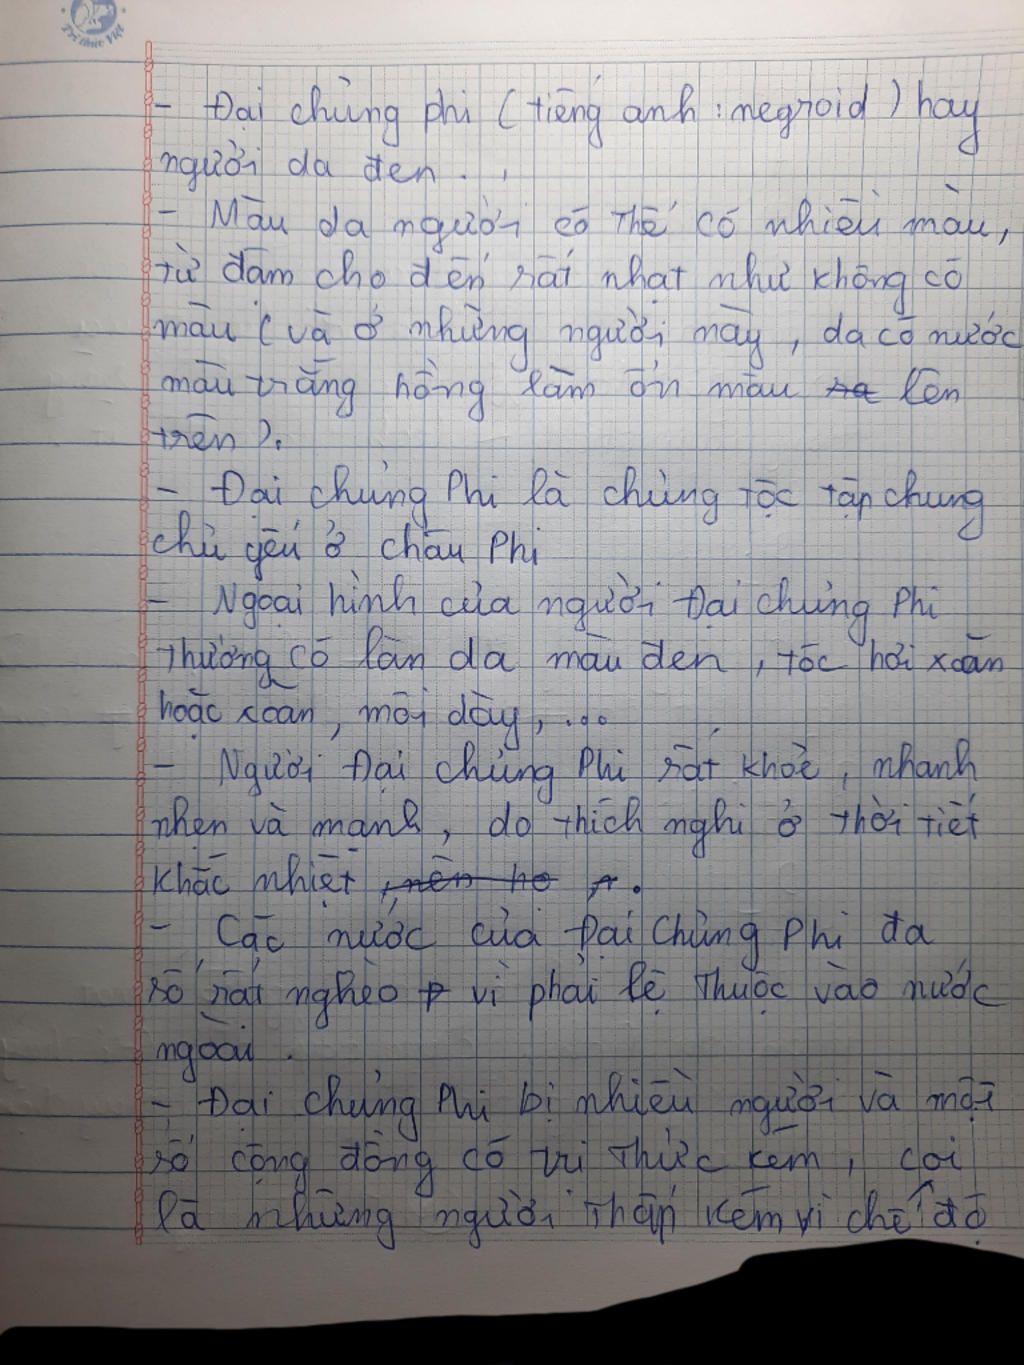 Trí thức Việt
- Đại chủng phi (tiếng anh : negroid) hay
người da đen.
- Màu da người có thể có nhiều màu,
từ đậm cho đến rất nhạt như không có
màu (và ở những người này, da có nước
màu trắng hồng làm ổn màu lên
trên).
- Đại chủng Phi là chủng tộc tập chung
chủ yếu ở châu Phi
- Ngoại hình của người Đại chủng Phi
thường có làn da màu đen, tóc hơi xoăn
hoặc xoăn, môi dày,...
- Người Đại chủng Phi rất khoẻ, nhanh
nhẹn và mạnh, do thích nghi ở thời tiết
khắc nhiệt, nên họ.
- Các nước của Đại Chủng Phi đa
số rất nghèo vì phải lệ thuộc vào nước
ngoài.
- Đại chủng Phi bị nhiều người và một
số cộng đồng có tri thức kém, coi
là những người thấp kém vì chế độ